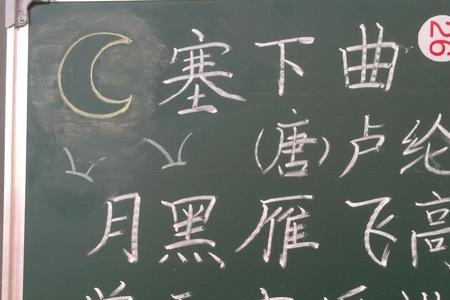 塞下曲
26
(唐)卢纶
月黑雁飞高